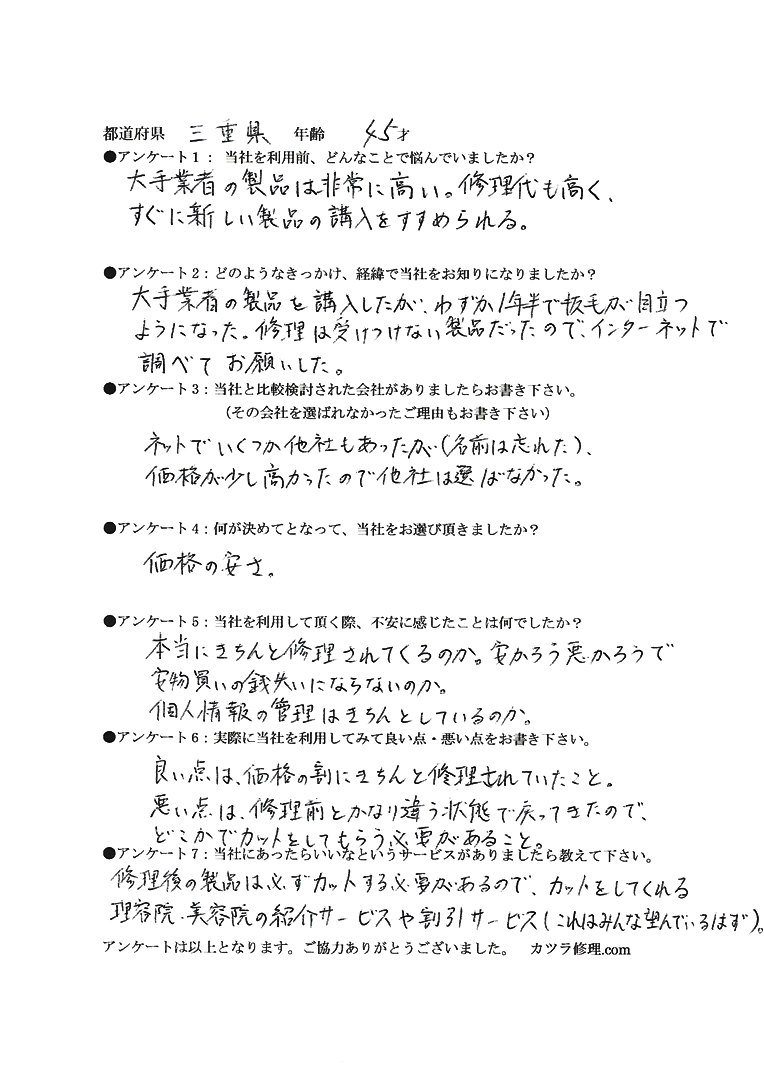 都道府県 三重県 年齢 45才
●アンケート1: 当社を利用前、どんなことで悩んでいましたか?
大手業者の製品は非常に高い。修理代も高く、
すぐに新しい製品の講入をすすめられる。
●アンケート2:どのようなきっかけ、経緯で当社をお知りになりましたか?
大手業者の製品を講入したが、わずか1年半で抜毛が目立つ
ようになった。修理は受けつけない製品だったので、インターネットで
調べてお願いした。
●アンケート3:当社と比較検討された会社がありましたらお書き下さい。
(その会社を選ばれなかったご理由もお書き下さい)
ネットでいくつか他社もあったが(名前は忘れた)、
価格が少し高かったので他社は選ばなかった。
●アンケート4:何が決めてとなって、当社をお選び頂きましたか?
価格の安さ。
●アンケート5:当社を利用して頂く際、不安に感じたことは何でしたか?
本当にきちんと修理されてくるのか。安かろう悪かろうで
安物買いの銭失いにならないのか。
個人情報の管理はきちんとしているのか。
●アンケート6:実際に当社を利用してみて良い点・悪い点をお書き下さい。
良い点は、価格の割にきちんと修理されていたこと。
悪い点は、修理前とかなり違う状態で戻ってきたので、
どこかでカットをしてもらう必要があること。
●アンケート7:当社にあったらいいなというサービスがありましたら教えて下さい。
修理後の製品は必ずカットする必要があるので、カットをしてくれる
理容院、美容院の紹介サービスや割引サービス(これはみんな望んでいるはず)。
アンケートは以上となります。ご協力ありがとうございました。 カツラ修理.com